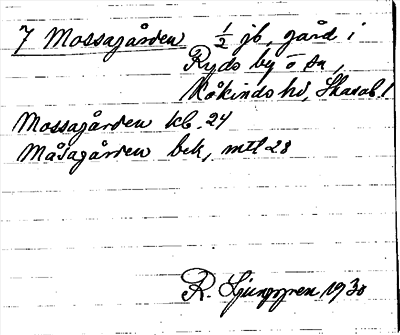 7 Mossagården 1/2 jb, gård i
Ryds by o sn,
Kåkinds hd, Skarab. l.
Mossagården kb. 24
Måsagården bek, mtl 28
R. Ljunggren, 1930